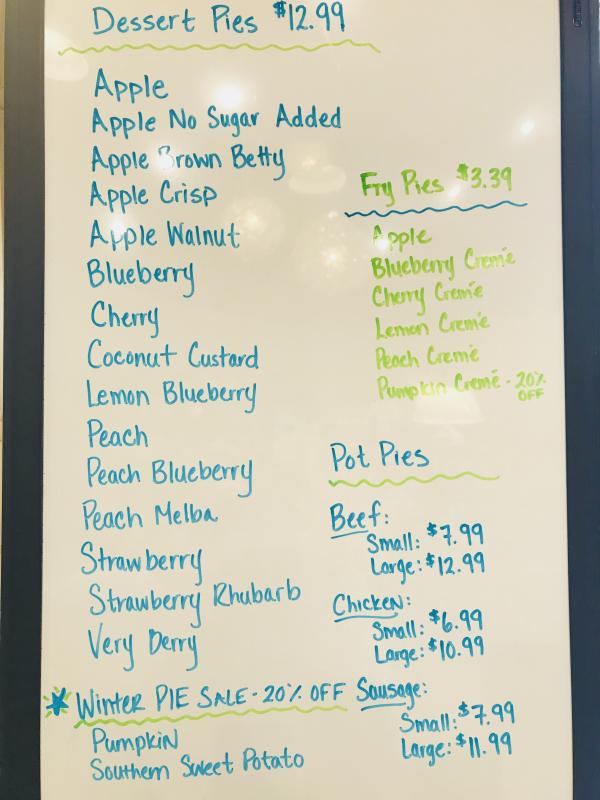 Dessert Pies $12.99
Apple
Apple No Sugar Added
Apple Brown Betty
Apple Crisp
Apple Walnut
Blueberry
Cherry
Coconut Custard
Lemon Blueberry
Peach
Peach Blueberry
Peach Melba
Strawberry
Strawberry Rhubarb
Very Berry
Winter PIE SALE - 20% OFF
Pumpkin
Southern Sweet Potato
Fry Pies $3.39
Apple
Blueberry Cremé
Cherry Cremé
Lemon Cremé
Peach Cremé
Pumpkin Cremé - 20% OFF
Pot Pies
Beef:
Small: $7.99
Large: $12.99
Chicken:
Small: $6.99
Large: $10.99
Sausage:
Small: $7.99
Large: $11.99